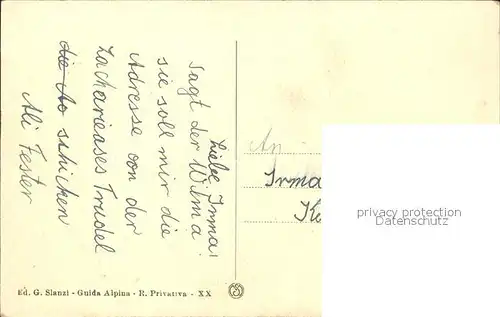 Liebe Irma!
Sagt der Wilma
sie soll mir die
Adresse von der
Zachariases Trudel
die Ao schicken
Ali Fester
An
Irma
Ed. G. Slanzi - Guida Alpina - R. Privativa - XX
privacy protection
www.oldthing.net